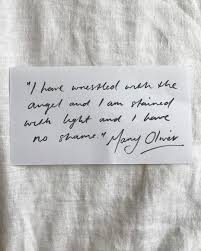 "I have wrestled with the
angel and I am stained
with light and I have
no shame" Mary Oliver